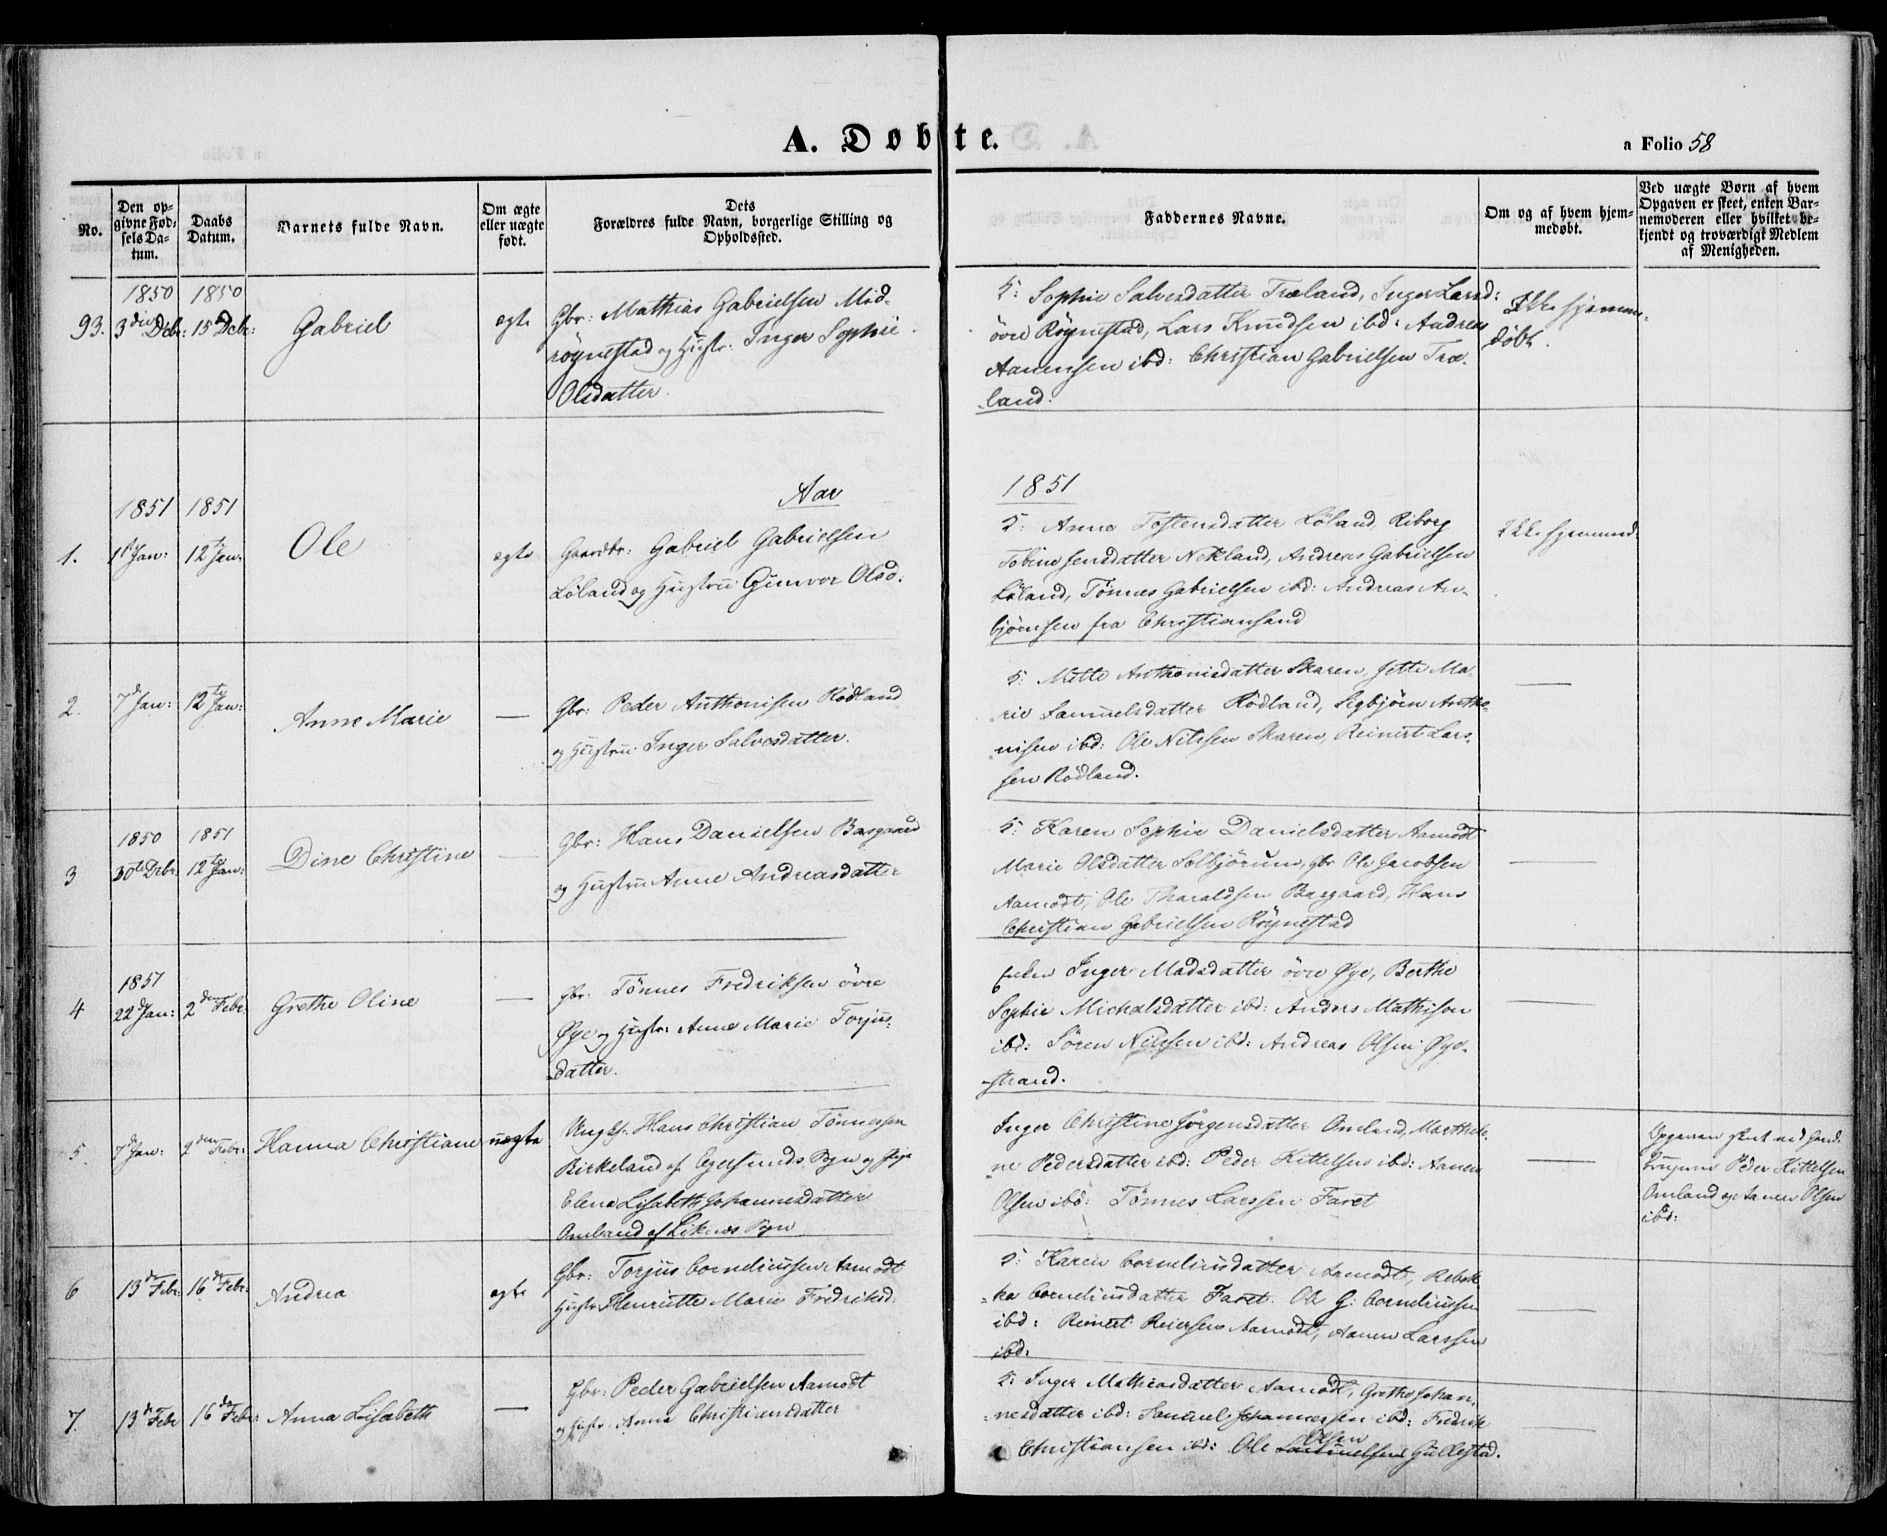 A. Døbte.
a Folio 58
No.
Den op-
givne Fød-
sels Da-
tum.
Daabs
Datum.
Barnets fulde Navn.
Om ægte
eller uægte
født.
Dets
Forældres fulde Navn, borgerlige Stilling og
Opholdssted.
Faddernes Navne.
Om og af hvem hjem-
medøbt.
Ved uægte Børn af hvem
Opgaven er skeet, enten Bar-
nemoderen eller hvilket be-
kjendt og troværdigt Medlem
af Menigheden.
93.
1850
3die Debr:
1850
15de Debr:
Gabriel
ægte
Gbr: Mathias Gabrielsen Mid-
røynestad og Hustr. Inger Sophie
Olsdatter.
5: Sophie Salvesdatter Træland, Inger Larsd:
øvre Røynestad, Lars Knudsen ibd: Andreas
Aanensen ibd: Christian Gabrielsen Træ-
land.
Ikke hjemme-
døbt.
Aar
1851
1.
1851
1st Jan:
1851
12te Jan:
Ole
ægte
Gaardbr: Gabriel Gabrielsen
Løland og Hustru Gunvor Olsd:
5: Anne Tostensdatter Løland, Riborg
Tobine Jensdatter Nekland, Andreas Gabrielsen
Løland, Tønnes Gabrielsen ibd: Andreas An-
bjørnsen fra Christiansand
Ikke hjemmed:
2.
7d Jan:
12te Jan:
Anne Marie
—
Gbr: Peder Anthonisen Rødland
og Hustru Inger Salvesdatter.
5: Mette Anthonisdatter Skaren, Jette Ma-
rie Samuelsdatter Rødland, Sigbjørn Antho-
nisen ibd: Ole Nilssen Skaren, Reinert Lars-
sen Rødland.
—
3
1850
30te Debr:
1851
12te Jan:
Dine Christine
—
Gbr: Hans Danielsen Baasgaard
og Hustru Anne Andreasdatter
5: Karen Sophie Danielsdatter Aamodt
Marie Olsdatter Solbjørum, gbr Ole Jacobsen
Aamodt, Ole Tharaldsen Baasgaard, Hans
Christian Gabrielsen Røynestad
—
4
1851
22d Jan:
2den Febr:
Grethe Oline
—
Gbr: Tønnes Fredriksen øvre
Øye og Hustr: Anne Marie Torjus-
datter.
Enken Inger Madsdatter øvre Øye, Berthe
Sophie Michalsdatter ibd: Anders Mathisen
ibd: Søren Nilssen ibd: Andreas Olsen Øye-
strand.
—
5.
7d Jan:
9den Febr:
Hanna Christiane
uægte
Ungk. Hans Christian Tønnessen
Birkeland af Egersunds Pgn og Pige
Elena Lisabeth Johannesdatter
Omland af Liknæs Pgn
Inger Christine Jørgensdatter Omland, Marthili-
ne Pedersdatter ibd: Peder Kittelsen ibd: Aanen
Olsen ibd: Tønnes Larssen Faret
—
Opgaven skeet ved
Peder Kittelsen
Omland og Aanen Olsen
ibd:
6
13de Febr:
16de Febr:
Andrea
ægte
Gbr: Torjus Corneliussen Aamodt
Hustr. Henriette Marie Fredriksd:
5: Karen Corneliusdatter Aamodt, Rebek-
ka Corneliusdatter Faret. Ole G: Corneliussen
ibd: Reinert Reiersen Aamodt, Aanen Larssen
ibd:
—
7.
13de Febr
16de Febr:
Anna Lisabeth
—
Gbr: Peder Gabrielsen Aamodt
og Hustr. Anna Christiansdatter
5: Inger Mathiasdatter Aamodt, Grethe Johan-
nesdatter ibd: Samuel Johannessen ibd: Fredrik
Olsen
Christiansen ibd: Ole Samuelsen Gullestad.
—